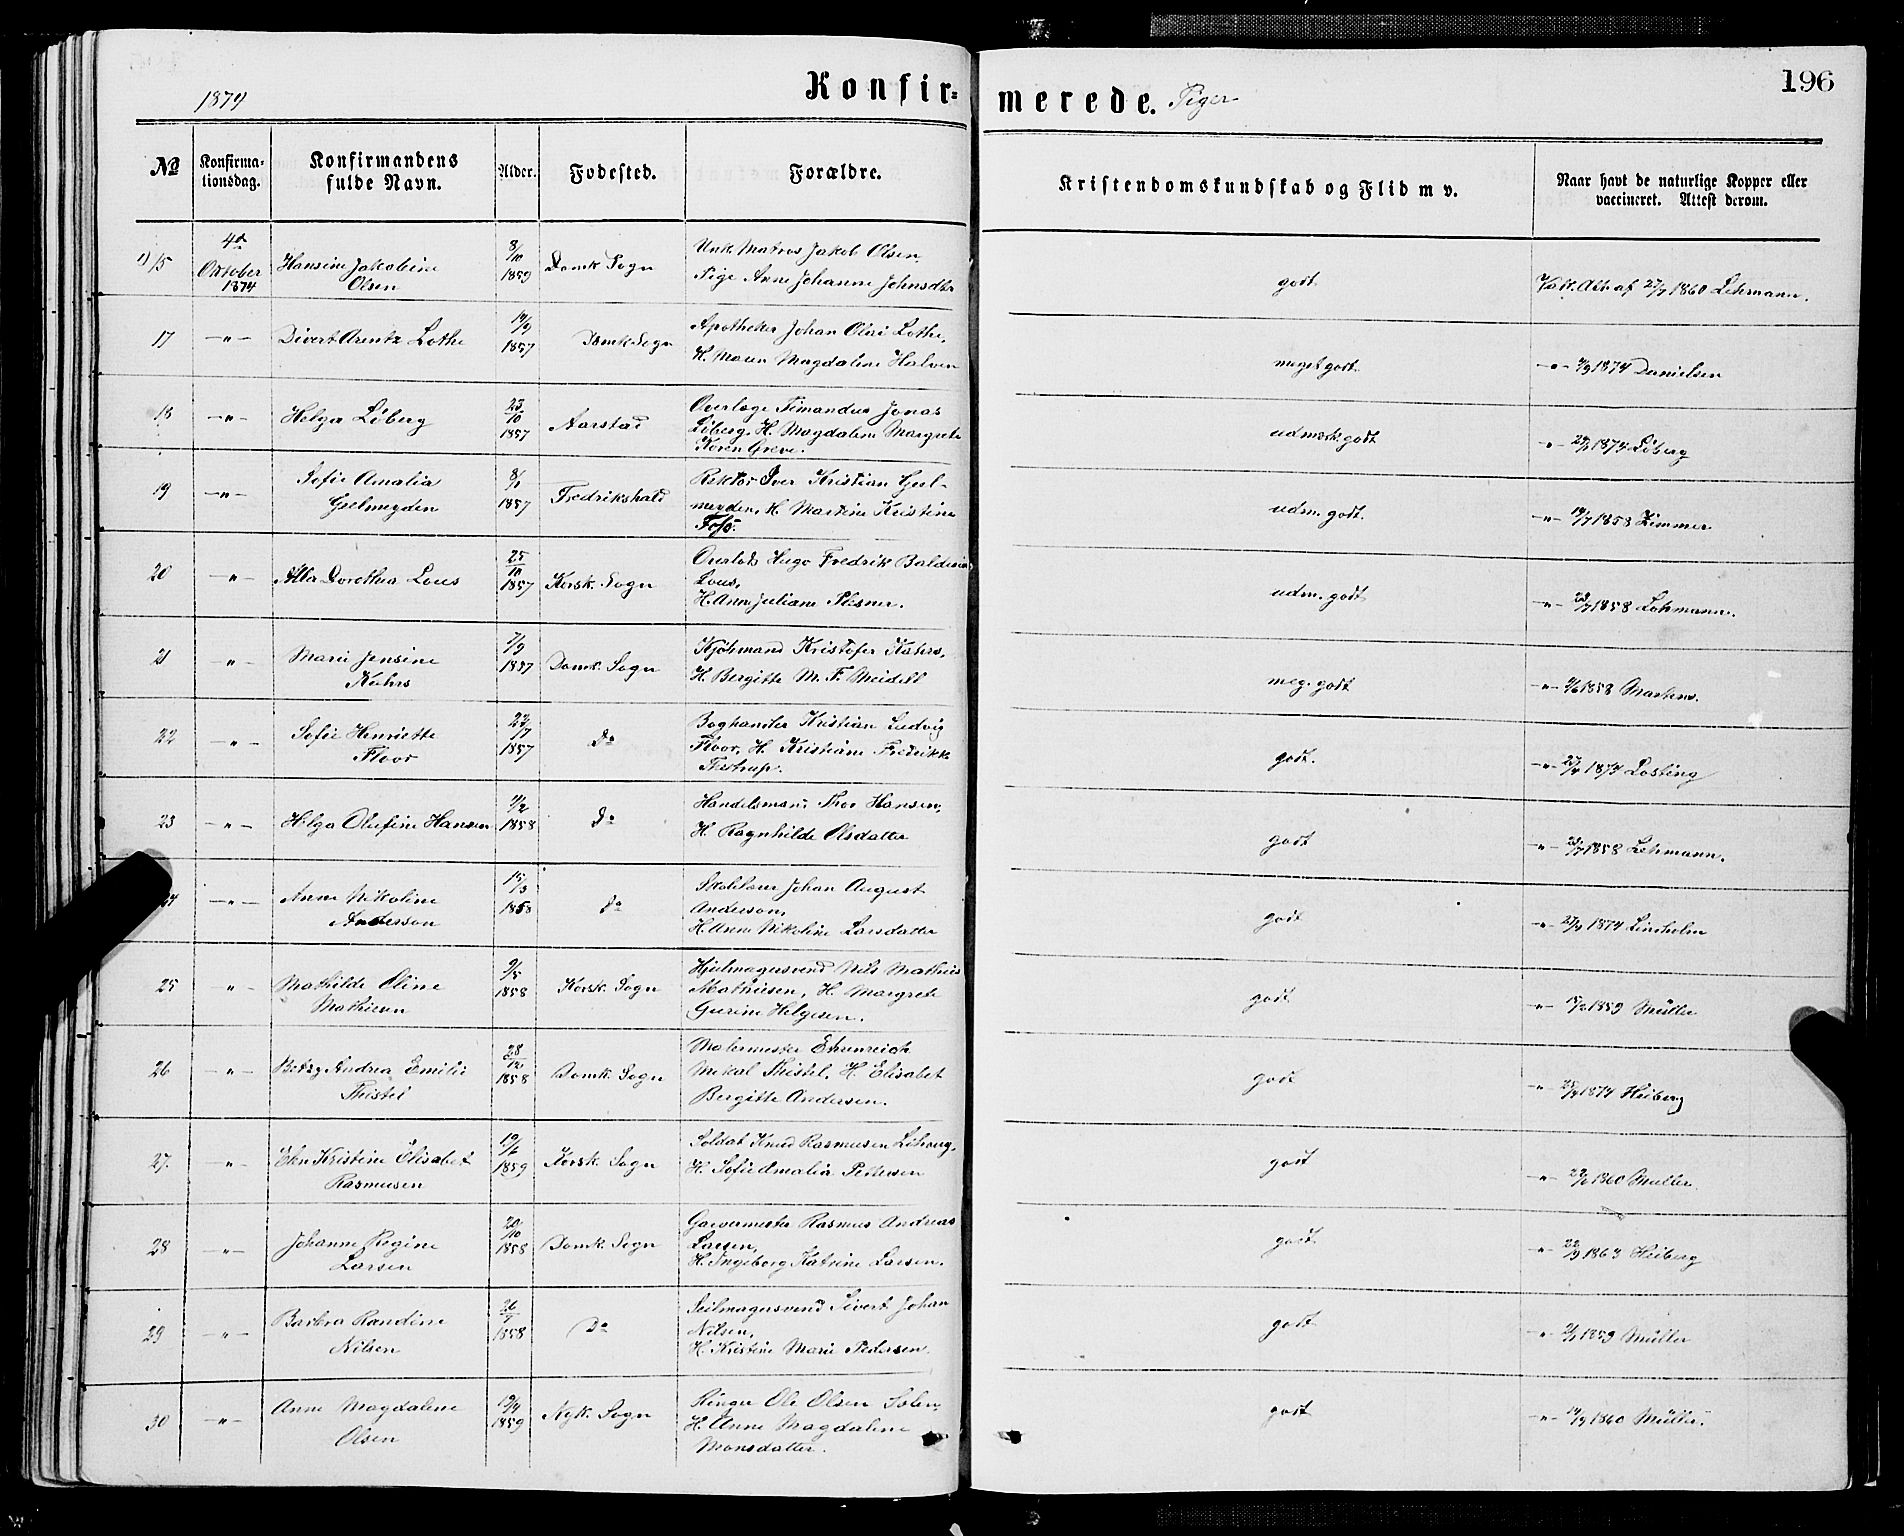 1874
Konfir-
merede. Piger
196
No
Konfirma-
tionsdag.
Konfirmandens
fulde Navn.
Alder.
Fødested.
Forældre.
Kristendomskundskab og Flid m v.
Naar havt de naturlige Kopper eller
vaccineret. Attest derom.
4de
Oktober
1874
Hansine Jakobine
Olsen
8/10
1859
Domk. Sogn
Unk. Matros Jakob Olsen,
Pige Anne Johanne Johnsdtr
godt
Vatt. Att. af 27/7 1860 Lehmann.
17
-"-
Divert Arentz Lothe
14/9
1857
Domk Sogn
Apotheker Johan Olai Lothe,
H. Maren Magdalene Halven
meget godt
-"- 4/9 1874 Danielsen
18
-"-
Helga Løberg
23/10
1857
Aarstad
Overlæge Timandus Jonas
Løberg, H. Magdalene Margrete
Koren Greve.
udmærk. godt
-"- 29/9 1874 Løberg
19
-"-
Sofie Amalia
Gjelmeyden
8/1
1857
Fredrikshald
Rektor Iver Kristian Gjel-
meyden, H. Martine Kristine
Foss.
udm. godt.
-"- 19/7 1858 Zimmer
20
-"-
Alla Dorothea Lous
25/10
1857
Korsk. Sogn
Overlods Hugo Fredrik Balderin
Lous,
H. Anne Juliane Plesner.
udm. godt
-"- 23/7 1858 Lehmann.
21
-"-
Marie Jensine
Kahrs
7/9
1857
Domk. Sogn
Kjøbmand Kristofer Kahrs,
H. Bergitte M. F. Meidell
meg. godt
-"- 2/6 1858 Martens.
22
-"-
Sofie Henriette
Floor
23/7
1857
Do
Boghandler Kristian Ludvig
Floor, H. Kristiane Fredrikke
Thestrup.
godt.
-"- 27/9 1874 Losting
23
-"-
Helga Olufine Hansen
4/2
1858
Do
Handelsmand Thor Hansen,
H. Ragnhilde Olsdatter
godt
-"- 23/7 1858 Lehmann.
-"-
Anne Nikoline
Anderson
15/3
1858
Do
Skolelærer Johan August
Anderson,
H. Anne Nikoline Larsdatter
godt
-"- 27/9 1874 Lindholm
25
"-
Mathilde Oline
Mathiesen
9/5
1858
Korsk. Sogn
Hjulmagersvend Nils Mathias
Mathiesen, H. Margrete
Gurine Helgesen.
godt
-"- 15/2 1859 Müller
26
-"-
Betzy Andrea Emilie
Thistel
28/12
1858
Domk. Sogn
Malermester Ehrenreich
Mekal Thistel, H. Elisabet
Bergitte Andersen.
godt
-"- 25/9 1874 Heiberg
27.
-"-
Elen Kristine Elisabet
Rasmusen
19/6
1859
Korsk. Sogn
Soldat Knud Rasmusen
H. Sofie Amalia Pedersen
godt
-"- 22/6 1860 Müller
28
-"-
Johanne Regine
Larsen
20/10
1858
Domk. Sogn
Garvermester Rasmus Andreas
Larsen,
H. Ingeborg Katrine Larsen.
godt
-"- 22/9 1863 Heiberg
29
-"-
Barbra Randine
Nilsen
26/7
1858
Do
Seilmagersvend Sivert Johan
Nilsen,
H. Kristine Marie Pedersen.
godt
1859 Müller
30
-"-
Anne Magdalene
Olsen
19/4
1859
Nyk. Sogn
Ringer Ole Olsen
H. Anne Magdalene
Monsdatter.
godt
-"- 14/9 1860 Müller.